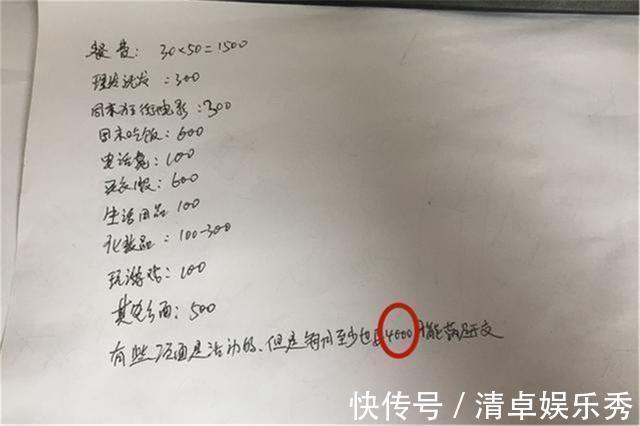 餐费: 30×50=1500
理发洗发: 300
周末逛街电影: 300
周末吃饭: 600
电话费: 100
买衣服: 600
生活用品 100
化妆品: 100-300
玩游戏: 100
其它方面: 500
有些项面是活动的、但是每月至少也要4000才能满足支
快传号/清卓娱乐秀